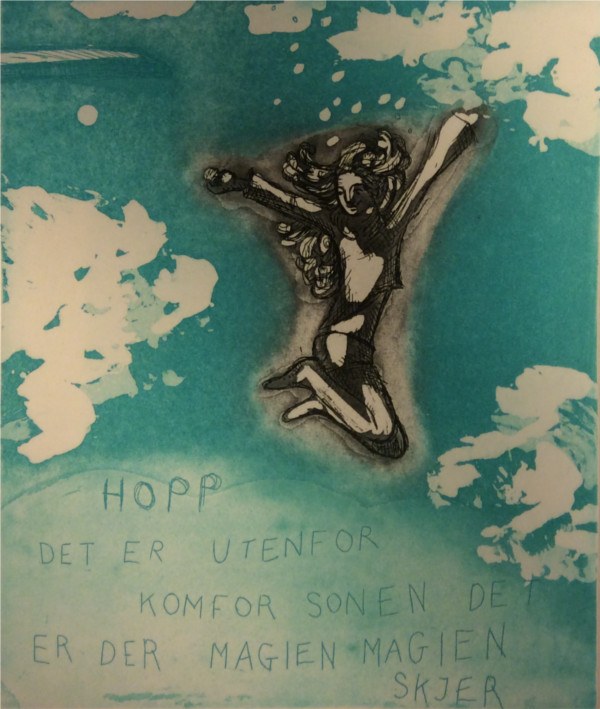 HOPP
DET ER UTENFOR
KOMFOR SONEN DET
ER DER MAGIEN MAGIEN
SKJER